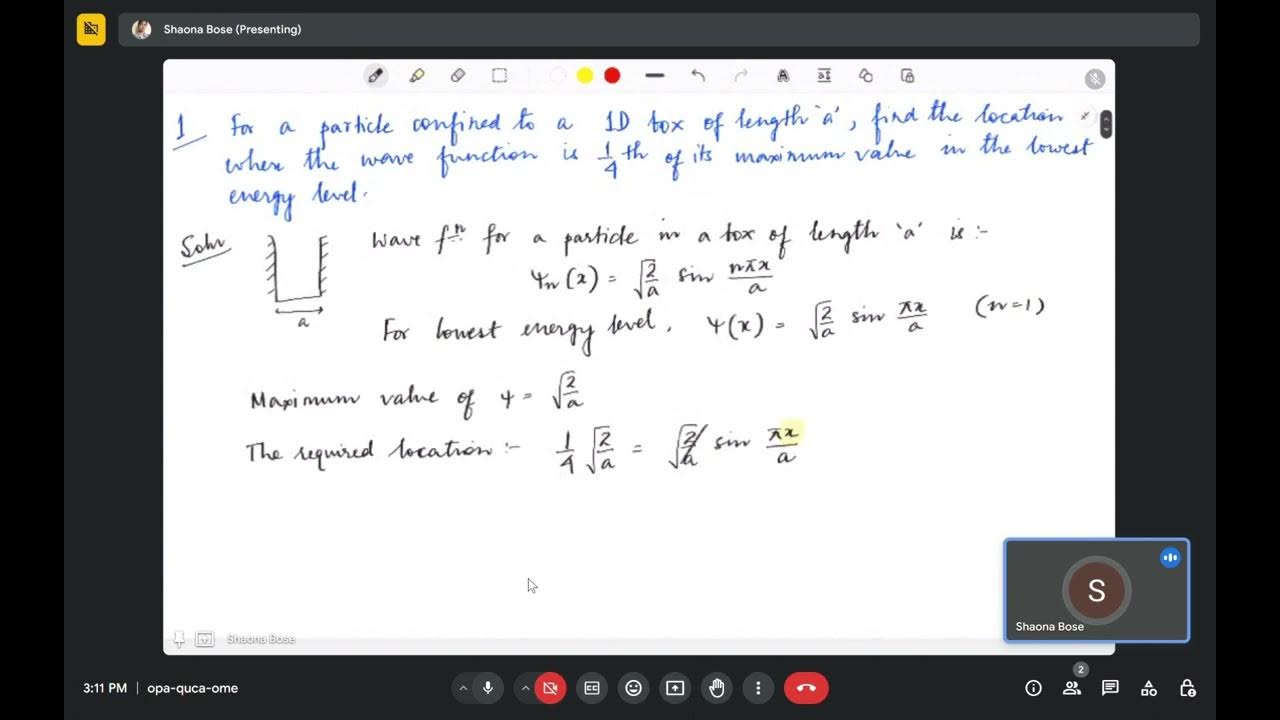 Shaona Bose (Presenting)
1 For a particle confined to a 1D box of length 'a', find the location
where the wave function is 1/4 th of its maximum value in the lowest
energy level.
Soln
Wave fⁿ for a particle in a box of length 'a' is :-
ψn(x) = √(2/a) sin nπx/a
a
For lowest energy level, ψ(x) = √(2/a) sin πx/a (n=1)
Maximum value of ψ = √(2/a)
The required location :- 1/4 √(2/a) = √(2/a) sin πx/a
S
Shaona Bose
Shaona Bose
3:11 PM | opa-quca-ome
2